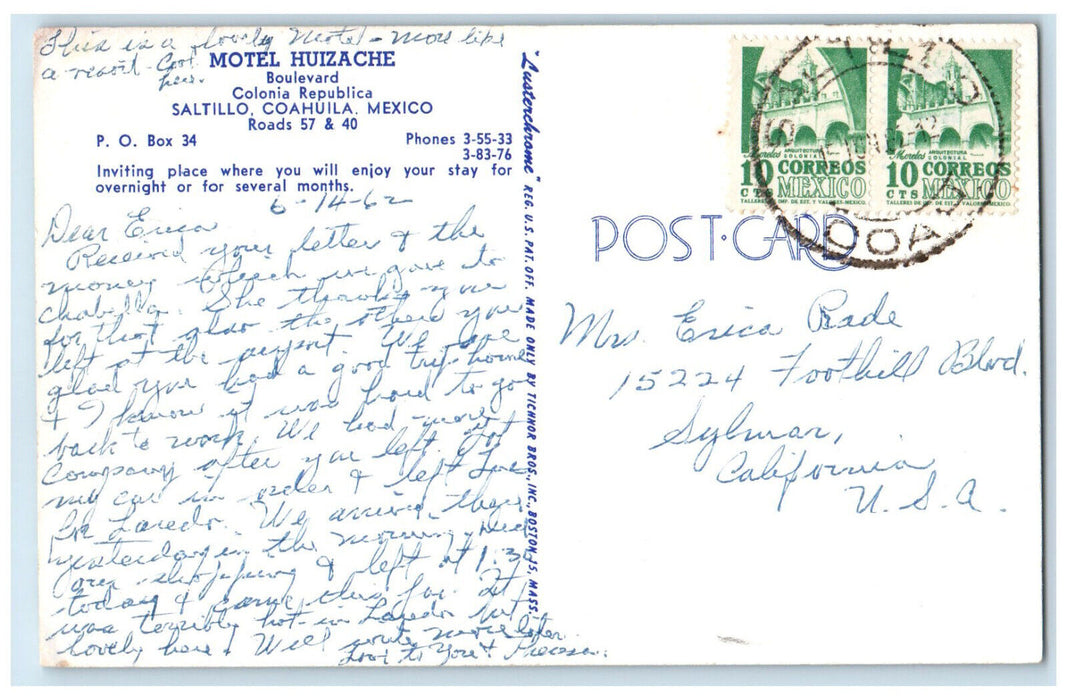 This is a lovely Motel - more like
a resort - Cool
here.
MOTEL HUIZACHE
Boulevard
Colonia Republica
SALTILLO, COAHUILA, MEXICO
Roads 57 & 40
P. O. Box 34 Phones 3-55-33
3-83-76
Inviting place where you will enjoy your stay for
overnight or for several months.
6-14-62
Dear Erica
Received your letter & the
money which we gave to
She thanks you
for that also the others you
left at the airport. We are
glad you had a good trip home
& I know it was hard to go
back to work. We had more
company after you left. Got
my car in order & left
for Laredo. We arrived there
yesterday in the morning. Did
our shopping & left at 1:30
today & came this far. It
was terribly hot in Laredo but
lovely here. Will write more later.
Love to you &
"Lusterchrome" REG. U.S. PAT. OFF. MADE ONLY BY TICHNOR BROS., INC., BOSTON 15, MASS.
Morelos ARQUITECTURA COLONIAL
10 CTS CORREOS MEXICO
TALLERES DE IMP. DE EST. Y VALORES-MEXICO.
Morelos ARQUITECTURA COLONIAL
10 CTS CORREOS MEXICO
TALLERES DE IMP. DE EST. Y VALORES-MEXICO.
POST·CARD
Mrs. Erica Rade
15224 Foothill Blvd.
Sylmar,
California
U.S.A.